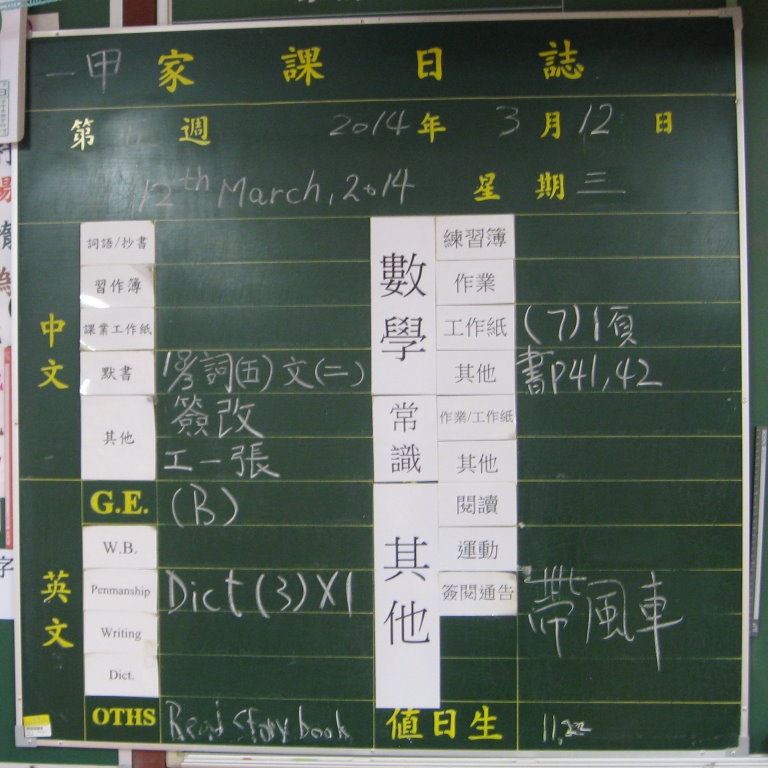 一甲 家課日誌
第 週 2014年 3月12日
12th March, 2014 星期三
中文
詞語/抄書
習作簿
課業工作紙
默書 詞(五) 文(二)
其他 簽改
工一張
G.E. (B)
英文
W.B.
Penmanship Dict (3) X1
Writing
Dict.
OTHS Read story book
數學
練習簿
作業
工作紙 (7) 1頁
其他 書P41, 42
常識
作業/工作紙
其他
其他
閱讀
運動
簽閱通告 帶風車
值日生 11,22